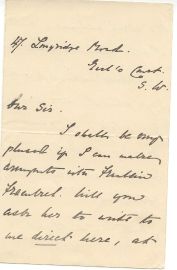 47 Longridge Road.
Earl's Court.
S. W.
Dear Sir.
I shall be very
pleased if I can make
arrangements with
will you
ask her to write to
me direct here, at